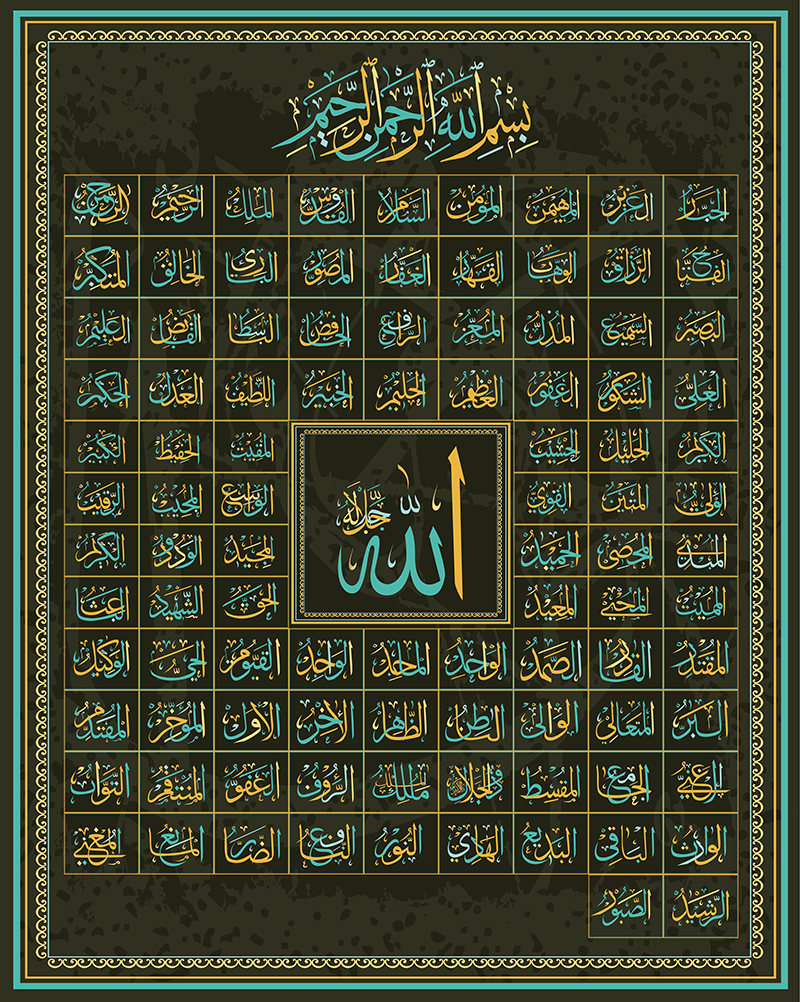 بِسْمِ اللَّهِ الرَّحْمَنِ الرَّحِيمِ
الرحمن الرحيم الملك القدوس السلام المؤمن المهيمن العزيز الجبار
المتكبر الخالق البارئ المصور الغفار القهار الوهاب الرزاق الفتاح
العليم القابض الباسط الخافض الرافع المعز المذل السميع البصير
الحكم العدل اللطيف الخبير الحليم العظيم الغفور الشكور العلي
الكبير الحفيظ المقيت الحسيب الجليل الكريم
الرقيب المجيب الواسع القوي المتين الولي
الله جل جلاله
الكريم الودود المجيد الحميد المحصي المبدئ
الباعث الشهيد الحق المعيد المحيي المميت
الوكيل الحي القيوم الواجد الماجد الواحد الصمد القادر المقتدر
المقدم المؤخر الأول الآخر الظاهر الباطن الوالي المتعالي البر
التواب المنتقم العفو الرؤوف مالك الملك المقسط الجامع
المغني المانع الضار النافع النور الهادي البديع الباقي الوارث
الرشيد الصبور